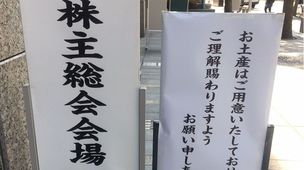 株主総会会場
お土産はご用意いたしてお
ご理解賜わりますよう
お願い申し